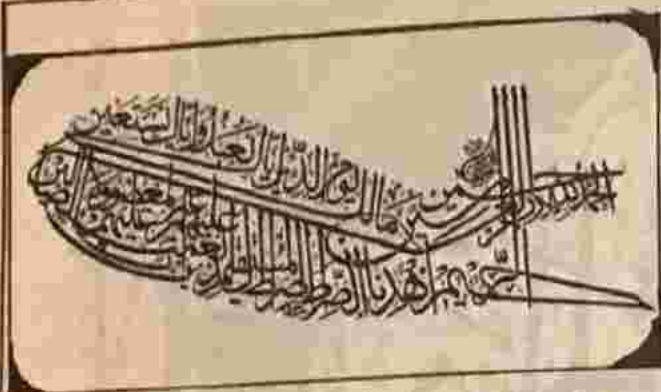 الحمد لله رب العالمين
الرحمن الرحيم
مالك يوم الدين اياك نعبد واياك نستعين
اهدنا الصراط المستقيم صراط الذين
انعمت عليهم غير المغضوب عليهم ولا الضالين